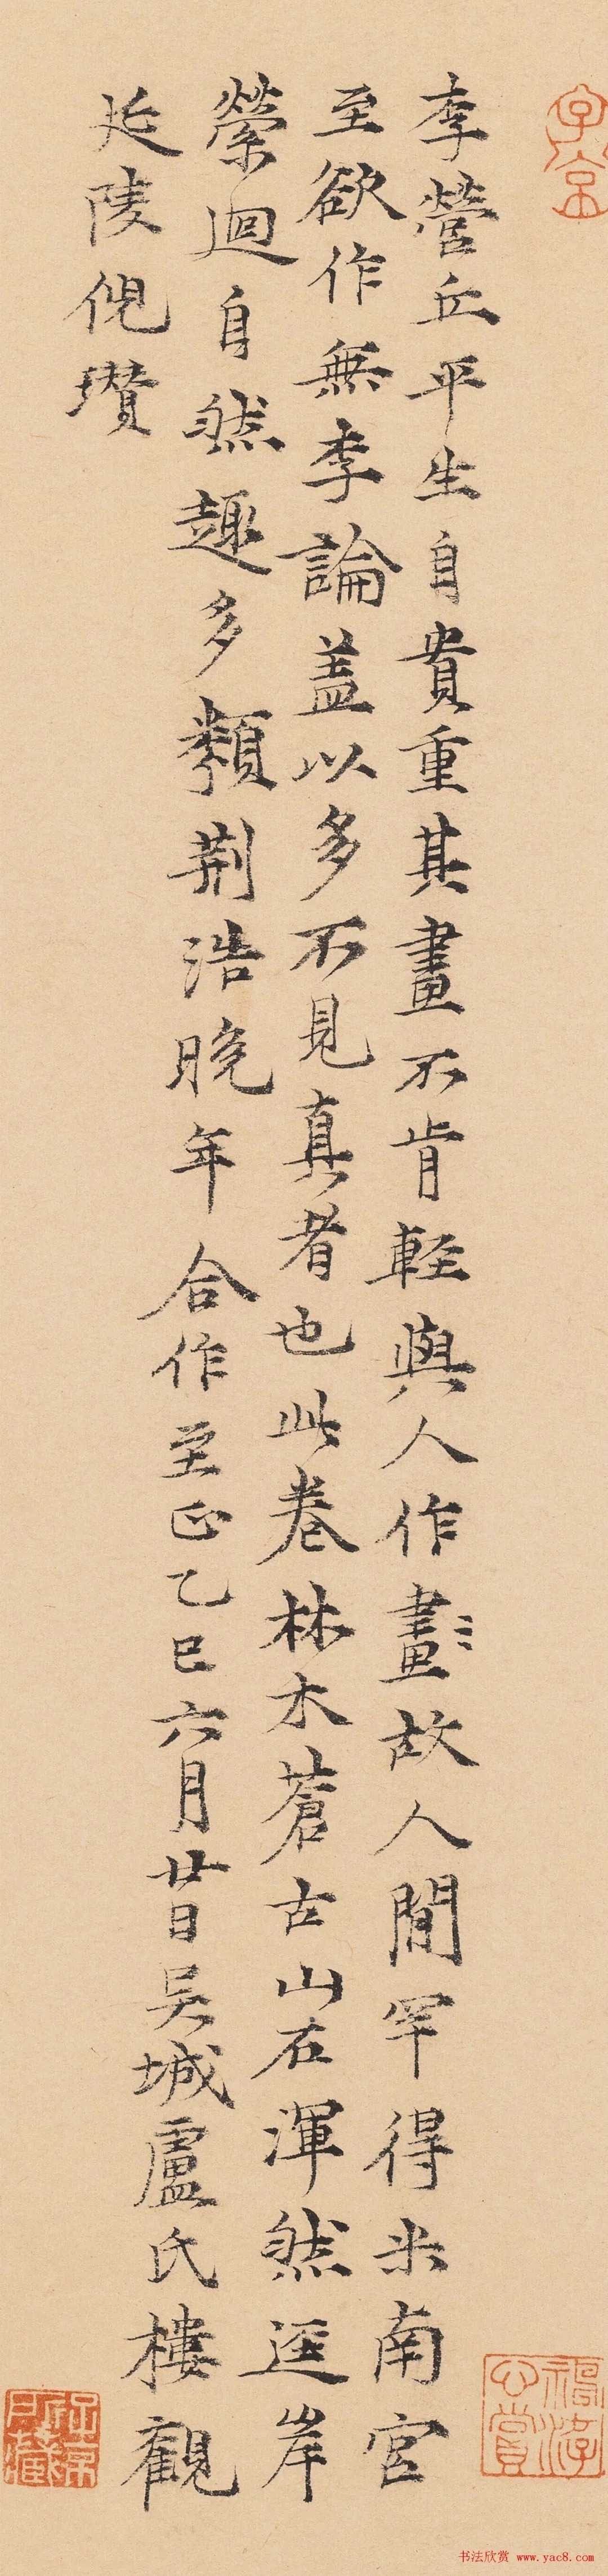 李營丘平生自貴重其畫不肯輕與人作畫〻故人間罕得米南宮
至欲作無李論蓋以多不見真者也此卷林木蒼古山石渾然逕岸
縈迴自然趣多類荊浩晚年合作至正乙巳六月廿日吳城盧氏樓觀
延陵倪瓚
书法欣赏 www.yac8.com